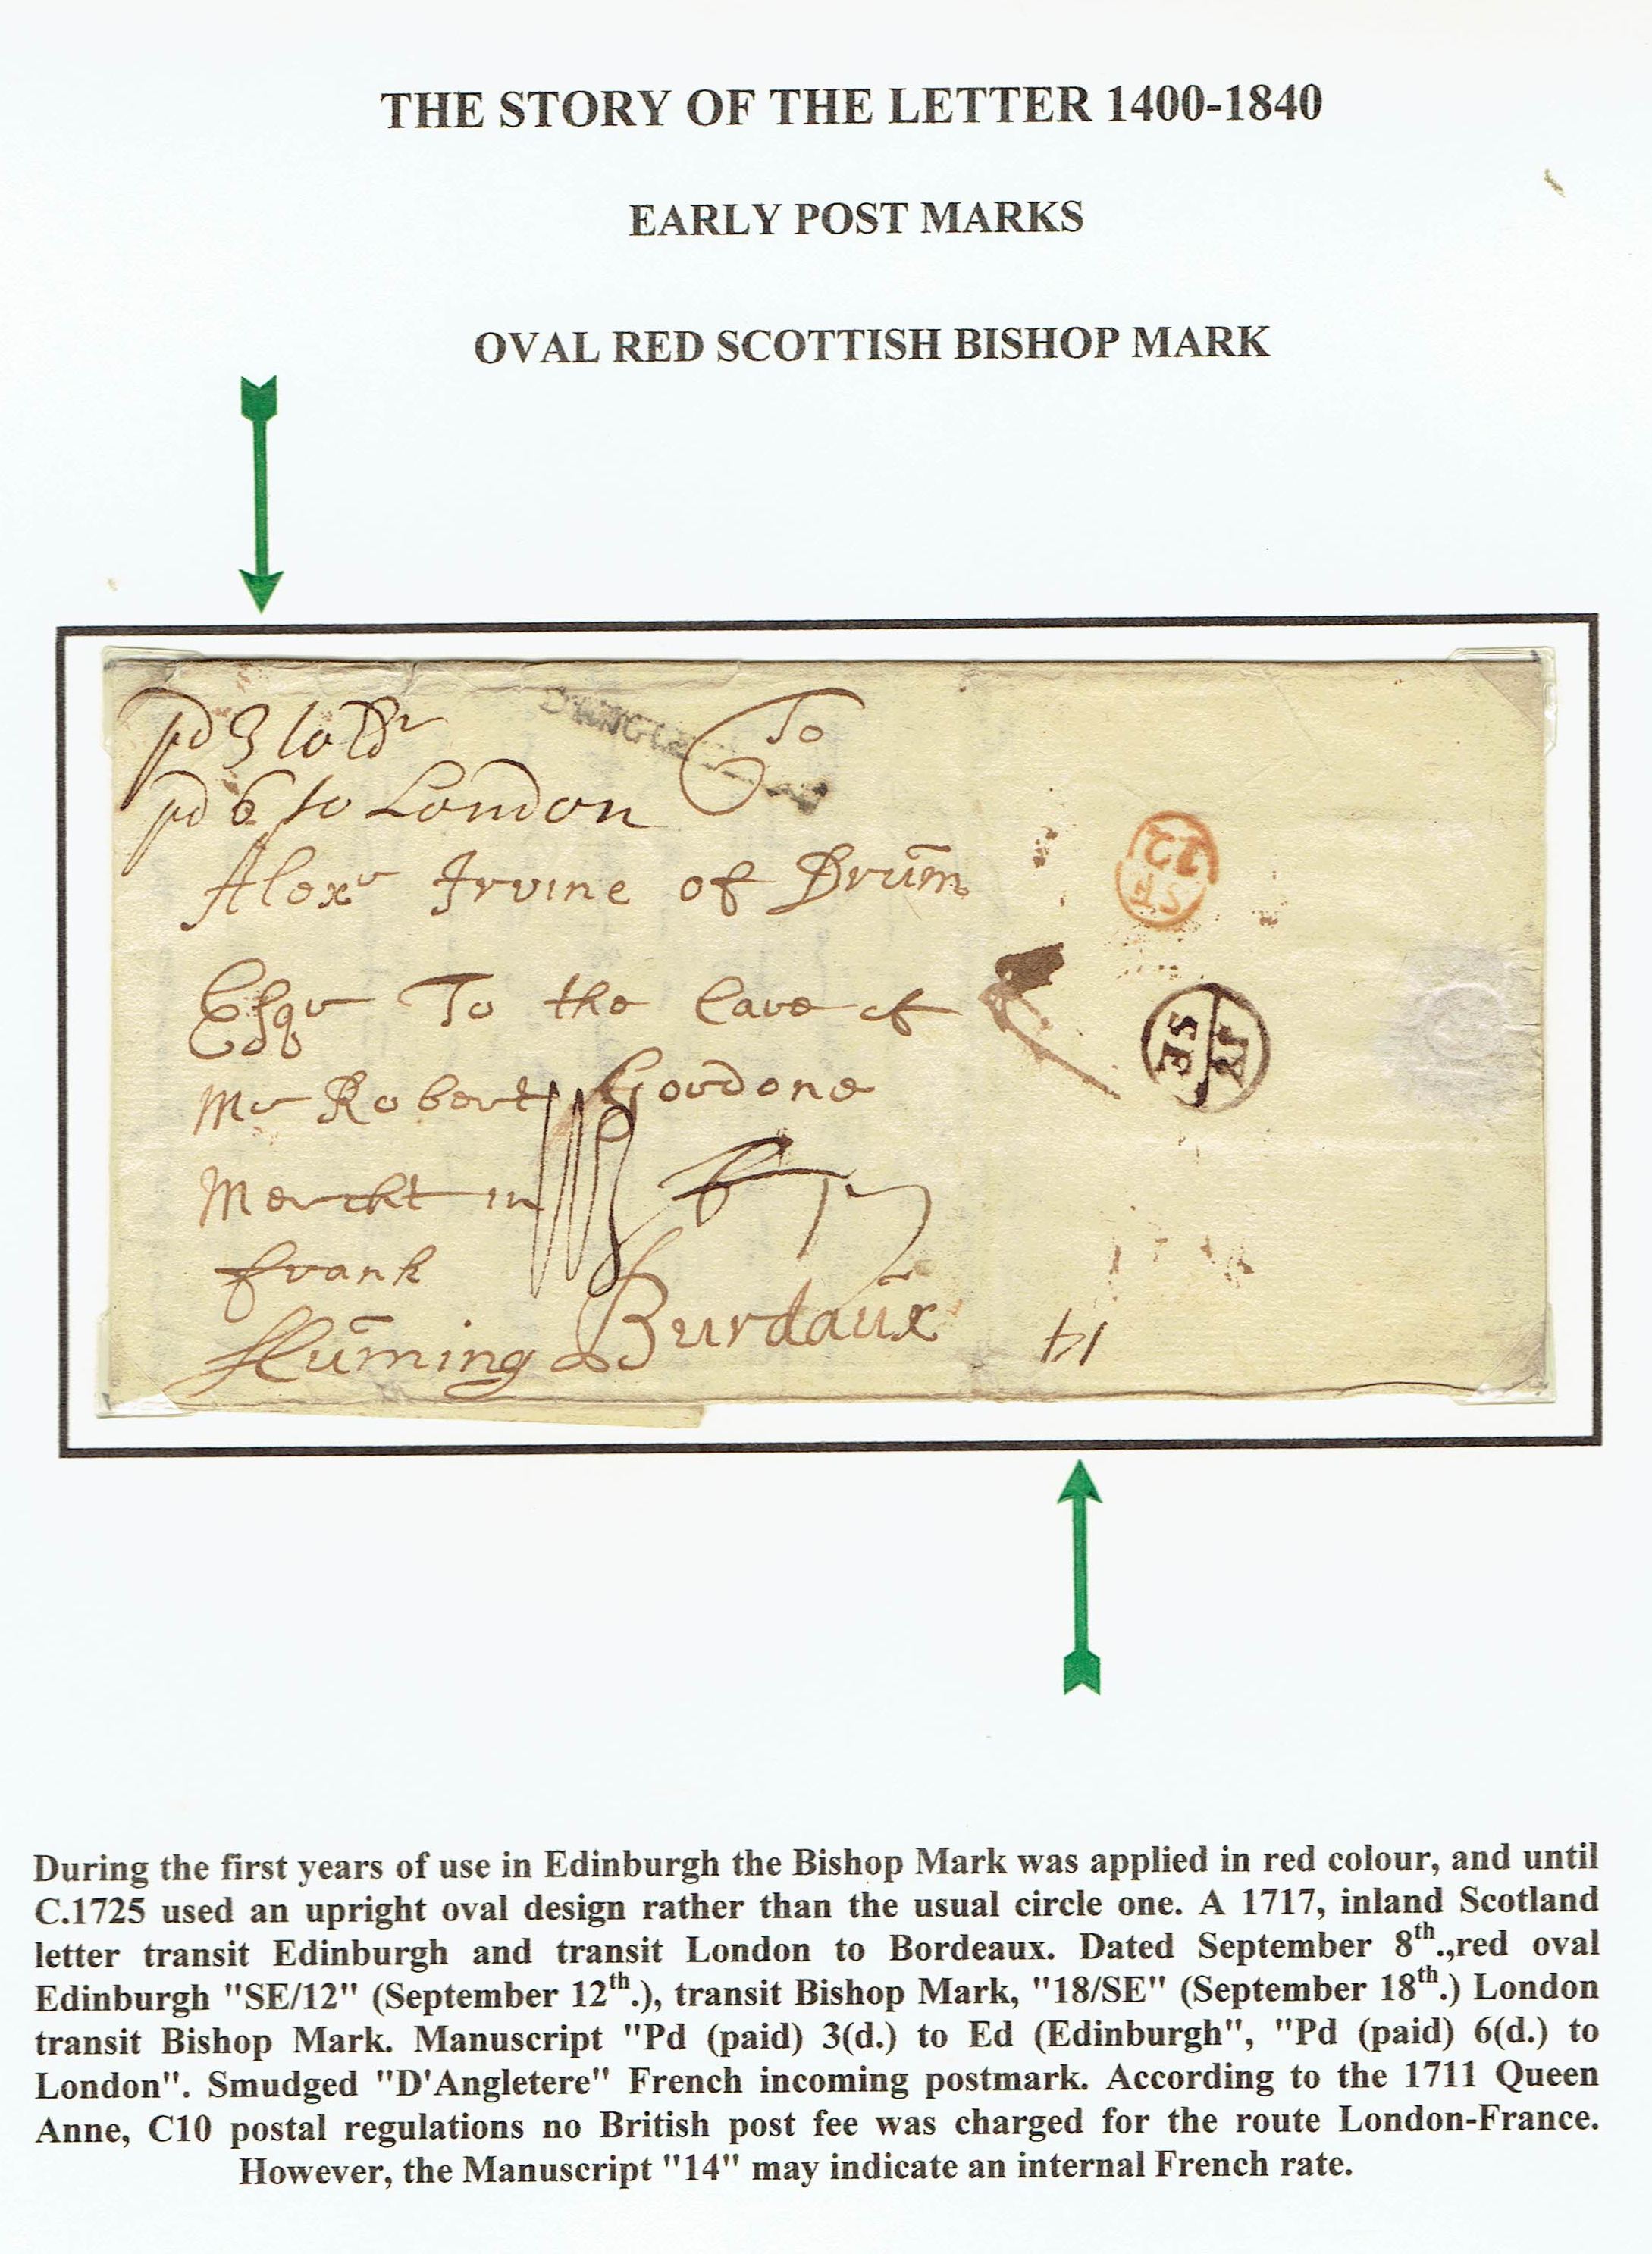 THE STORY OF THE LETTER 1400-1840
EARLY POST MARKS
OVAL RED SCOTTISH BISHOP MARK
pd 3 to Edr
pd 6 to London
To
Alexr Irvine of Drum
Esqr To the Care of
Mr Robert Gordone
Mercht in
frank
Burdaux
SE
12
18
SE
14
During the first years of use in Edinburgh the Bishop Mark was applied in red colour, and until
C.1725 used an upright oval design rather than the usual circle one. A 1717, inland Scotland
letter transit Edinburgh and transit London to Bordeaux. Dated September 8th.,red oval
Edinburgh "SE/12" (September 12th.), transit Bishop Mark, "18/SE" (September 18th.) London
transit Bishop Mark. Manuscript "Pd (paid) 3(d.) to Ed (Edinburgh", "Pd (paid) 6(d.) to
London". Smudged "D'Angletere" French incoming postmark. According to the 1711 Queen
Anne, C10 postal regulations no British post fee was charged for the route London-France.
However, the Manuscript "14" may indicate an internal French rate.